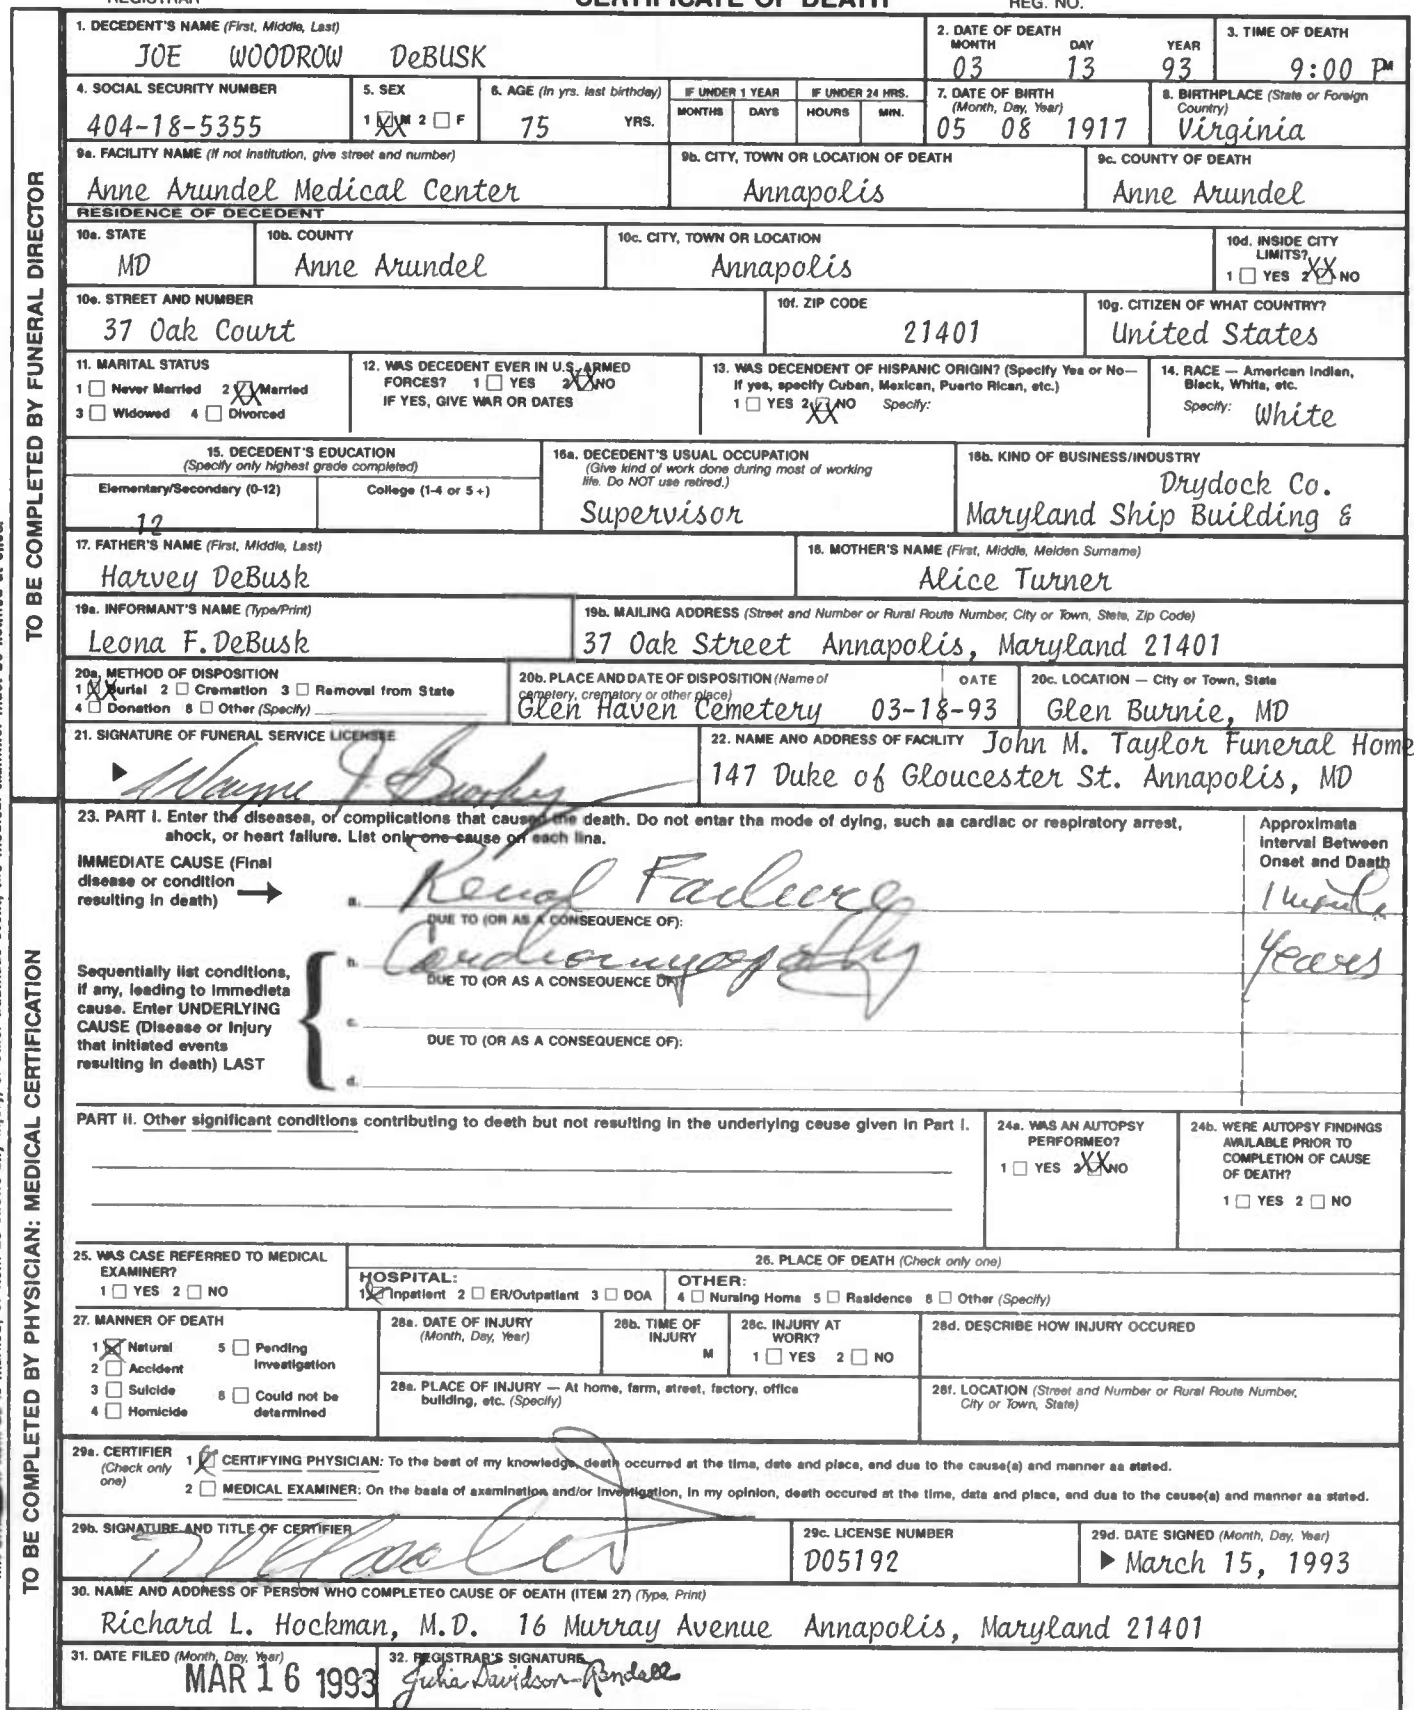 REGISTRAR CERTIFICATE OF DEATH REG. NO.
TO BE COMPLETED BY FUNERAL DIRECTOR
1. DECEDENT'S NAME (First, Middle, Last)
JOE WOODROW DeBUSK
2. DATE OF DEATH
MONTH DAY YEAR
03 13 93
3. TIME OF DEATH
9:00 PM
4. SOCIAL SECURITY NUMBER
404-18-5355
5. SEX
1 XX M 2 ☐ F
6. AGE (In yrs. last birthday)
75 YRS.
IF UNDER 1 YEAR
MONTHS DAYS
IF UNDER 24 HRS.
HOURS MIN.
7. DATE OF BIRTH
(Month, Day, Year)
05 08 1917
8. BIRTHPLACE (State or Foreign
Country)
Virginia
9a. FACILITY NAME (If not institution, give street and number)
Anne Arundel Medical Center
9b. CITY, TOWN OR LOCATION OF DEATH
Annapolis
9c. COUNTY OF DEATH
Anne Arundel
RESIDENCE OF DECEDENT
10a. STATE
MD
10b. COUNTY
Anne Arundel
10c. CITY, TOWN OR LOCATION
Annapolis
10d. INSIDE CITY
LIMITS?
1 ☐ YES 2 XX NO
10e. STREET AND NUMBER
37 Oak Court
10f. ZIP CODE
21401
10g. CITIZEN OF WHAT COUNTRY?
United States
11. MARITAL STATUS
1 ☐ Never Married 2 XX Married
3 ☐ Widowed 4 ☐ Divorced
12. WAS DECEDENT EVER IN U.S. ARMED
FORCES? 1 ☐ YES 2 XX NO
IF YES, GIVE WAR OR DATES
13. WAS DECENDENT OF HISPANIC ORIGIN? (Specify Yes or No—
If yes, specify Cuban, Mexican, Puerto Rican, etc.)
1 ☐ YES 2 XX NO Specify:
14. RACE — American Indian,
Black, White, etc.
Specify: White
15. DECEDENT'S EDUCATION
(Specify only highest grade completed)
Elementary/Secondary (0-12) College (1-4 or 5+)
12
16a. DECEDENT'S USUAL OCCUPATION
(Give kind of work done during most of working
life. Do NOT use retired.)
Supervisor
16b. KIND OF BUSINESS/INDUSTRY
Drydock Co.
Maryland Ship Building &
17. FATHER'S NAME (First, Middle, Last)
Harvey DeBusk
18. MOTHER'S NAME (First, Middle, Maiden Surname)
Alice Turner
19a. INFORMANT'S NAME (Type/Print)
Leona F. DeBusk
19b. MAILING ADDRESS (Street and Number or Rural Route Number, City or Town, State, Zip Code)
37 Oak Street Annapolis, Maryland 21401
20a. METHOD OF DISPOSITION
1 XX Burial 2 ☐ Cremation 3 ☐ Removal from State
4 ☐ Donation 8 ☐ Other (Specify)
20b. PLACE AND DATE OF DISPOSITION (Name of
cemetery, crematory or other place) DATE
Glen Haven Cemetery 03-18-93
20c. LOCATION — City or Town, State
Glen Burnie, MD
21. SIGNATURE OF FUNERAL SERVICE LICENSEE
Wayne J.
22. NAME AND ADDRESS OF FACILITY John M. Taylor Funeral Home
147 Duke of Gloucester St. Annapolis, MD
TO BE COMPLETED BY PHYSICIAN: MEDICAL CERTIFICATION
23. PART I. Enter the diseases, or complications that caused the death. Do not enter the mode of dying, such as cardiac or respiratory arrest,
shock, or heart failure. List only one cause on each line.
Approximate
Interval Between
Onset and Death
IMMEDIATE CAUSE (Final
disease or condition
resulting in death) →
a. Renal Failure 1
DUE TO (OR AS A CONSEQUENCE OF):
b. Cardiomyopathy Years
DUE TO (OR AS A CONSEQUENCE OF):
c.
DUE TO (OR AS A CONSEQUENCE OF):
d.
Sequentially list conditions,
if any, leading to immediate
cause. Enter UNDERLYING
CAUSE (Disease or Injury
that initiated events
resulting in death) LAST
PART II. Other significant conditions contributing to death but not resulting in the underlying cause given in Part I.
24a. WAS AN AUTOPSY
PERFORMED?
1 ☐ YES 2 XX NO
24b. WERE AUTOPSY FINDINGS
AVAILABLE PRIOR TO
COMPLETION OF CAUSE
OF DEATH?
1 ☐ YES 2 ☐ NO
25. WAS CASE REFERRED TO MEDICAL
EXAMINER?
1 ☐ YES 2 ☐ NO
26. PLACE OF DEATH (Check only one)
HOSPITAL:
1 ☒ Inpatient 2 ☐ ER/Outpatient 3 ☐ DOA
OTHER:
4 ☐ Nursing Home 5 ☐ Residence 6 ☐ Other (Specify)
27. MANNER OF DEATH
1 ☒ Natural 5 ☐ Pending
Investigation
2 ☐ Accident
3 ☐ Suicide 8 ☐ Could not be
determined
4 ☐ Homicide
28a. DATE OF INJURY
(Month, Day, Year)
28b. TIME OF
INJURY
M
28c. INJURY AT
WORK?
1 ☐ YES 2 ☐ NO
28d. DESCRIBE HOW INJURY OCCURED
28e. PLACE OF INJURY — At home, farm, street, factory, office
building, etc. (Specify)
28f. LOCATION (Street and Number or Rural Route Number,
City or Town, State)
29a. CERTIFIER
(Check only
one)
1 ☒ CERTIFYING PHYSICIAN: To the best of my knowledge, death occurred at the time, date and place, and due to the cause(s) and manner as stated.
2 ☐ MEDICAL EXAMINER: On the basis of examination and/or investigation, in my opinion, death occured at the time, date and place, and due to the cause(s) and manner as stated.
29b. SIGNATURE AND TITLE OF CERTIFIER
29c. LICENSE NUMBER
D05192
29d. DATE SIGNED (Month, Day, Year)
▶ March 15, 1993
30. NAME AND ADDRESS OF PERSON WHO COMPLETED CAUSE OF DEATH (ITEM 27) (Type, Print)
Richard L. Hockman, M.D. 16 Murray Avenue Annapolis, Maryland 21401
31. DATE FILED (Month, Day, Year)
MAR 16 1993
32. REGISTRAR'S SIGNATURE
Julia Davidson-Randall